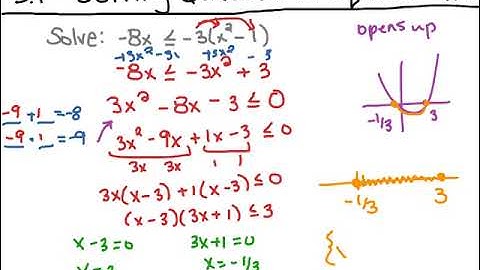 Solve: -8x ≤ -3(x² - 1)
+3x² -3 +3x² -3
-8x ≤ -3x² + 3
3x² - 8x - 3 ≤ 0
-9 + 1 = -8
-9 · 1 = -9
3x² - 9x + 1x - 3 ≤ 0
3x 3x 1 1
3x(x-3) + 1(x-3) ≤ 0
(x-3)(3x+1) ≤ 3
x-3=0 3x+1=0
x = -1/3
opens up
-1/3 3
-1/3 3